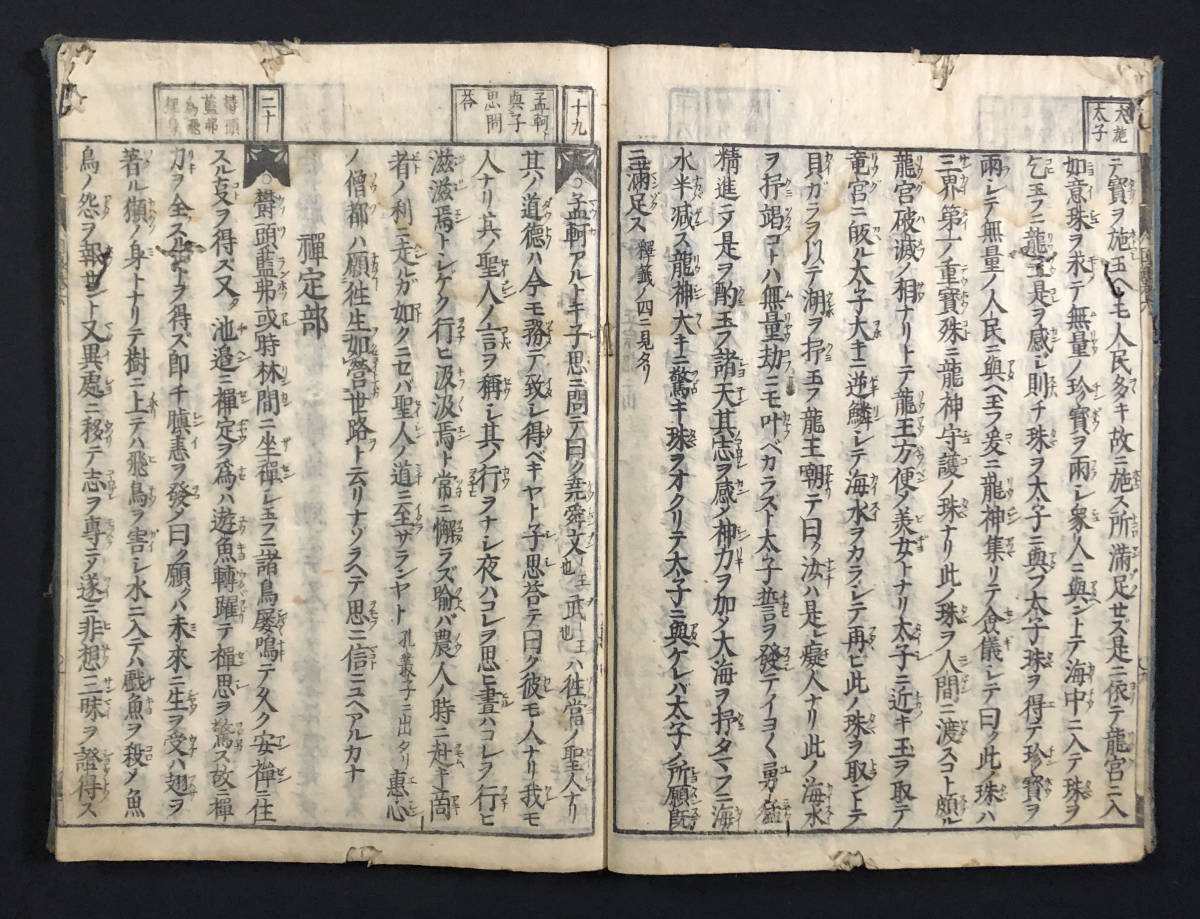 大施
太子
テ寳ヲ施玉ヘモ人民多キ故ニ施ス所滿足セス是ニ依テ龍宮ニ入
如意珠ヲ求メテ無量ノ珍寳ヲ雨シ衆人ニ與ントテ海中ニ入テ珠ヲ
乞玉フニ龍王是ヲ感シ則チ珠ヲ太子ニ與フ太子珠ヲ得テ珍寳ヲ
雨シテ無量ノ人民ニ與ヘ玉フ爰ニ龍神集リテ僉儀シテ曰ク此ノ珠ハ
三界第一ノ重寳殊ニ龍神守護ノ珠ナリ此ノ珠ヲ人間ニ渡スコト頗ル
龍宮破滅ノ相ナリトテ龍王方便ノ美女トナリ太子ニ近キ玉ヲ取テ
竜宮ニ皈ル太子大キニ逆鱗シテ海水ヲカラシテ再ヒ此ノ珠ヲ取ントテ
貝ガラヲ以テ潮ヲ抒玉ヲ龍王嘲テ曰ク汝ハ是レ癡人ナリ此ノ海水
ヲ抒竭コトハ無量劫ニモ叶ベカラスト太子誓言ヲ發テイヨ〱勇猛
精進ニテ是ヲ酌玉フ諸天其志ヲ感メ神力ヲ加ヘ大海ヲ抒タマフニ海
水半減ス龍神大キニ驚キ珠ヲオクリテ太子ニ與ケレバ太子ノ所願既
ニ滿足ス 釋籤ノ四ニ見タリ
十九
孟軻
與子
思問
答
○孟軻アルトキ子思ニ問テ曰ク堯舜文王也武王也ハ往當ノ聖人ナリ
其ノ道德ハ今モ務テ致シ得ベキヤト子思答テ曰ク彼モ人ナリ我モ
人ナリ其ノ聖人ノ言ヲ稱シ其ノ行ヲナシ夜ハコレヲ思ヒ晝ハコレヲ行ヒ
滋滋焉トシテク行ヒ汲汲焉ト常ニ懈ラズ喩バ農人ノ時ニ赴キ商
者ノ利ニ走ルガ如クニセバ聖人ノ道ニ至サランヤト 孔叢子ニ出タリ 惠心
ノ僧都ハ願往生如營世路ト云リナゾラヘテ思ニ信ニユヘアルカナ
禪定部
二十
欝頭
藍弗
○欝頭藍弗或時林間ニ坐禪シ玉フニ諸鳥屡鳴テ久ク安禪ニ住
スル支ヲ得ズ又ク池邉ニ禪定ヲ爲ハ遊魚轉躍テ禪思ヲ驚ス故ニ禪
力ヲ全スルコトヲ得ス即チ瞋恚ヲ發メ曰ク願クハ未來ニ生ヲ受ハ翅ヲ
著ル獺ノ身トナリテ樹ニ上テハ飛鳥ヲ害シ水ニ入テハ戲魚ヲ殺メ魚
鳥ノ怨ヲ報セント又異處ニ移テ志ヲ専ヲ遂ニ非想三昧ヲ證得ス